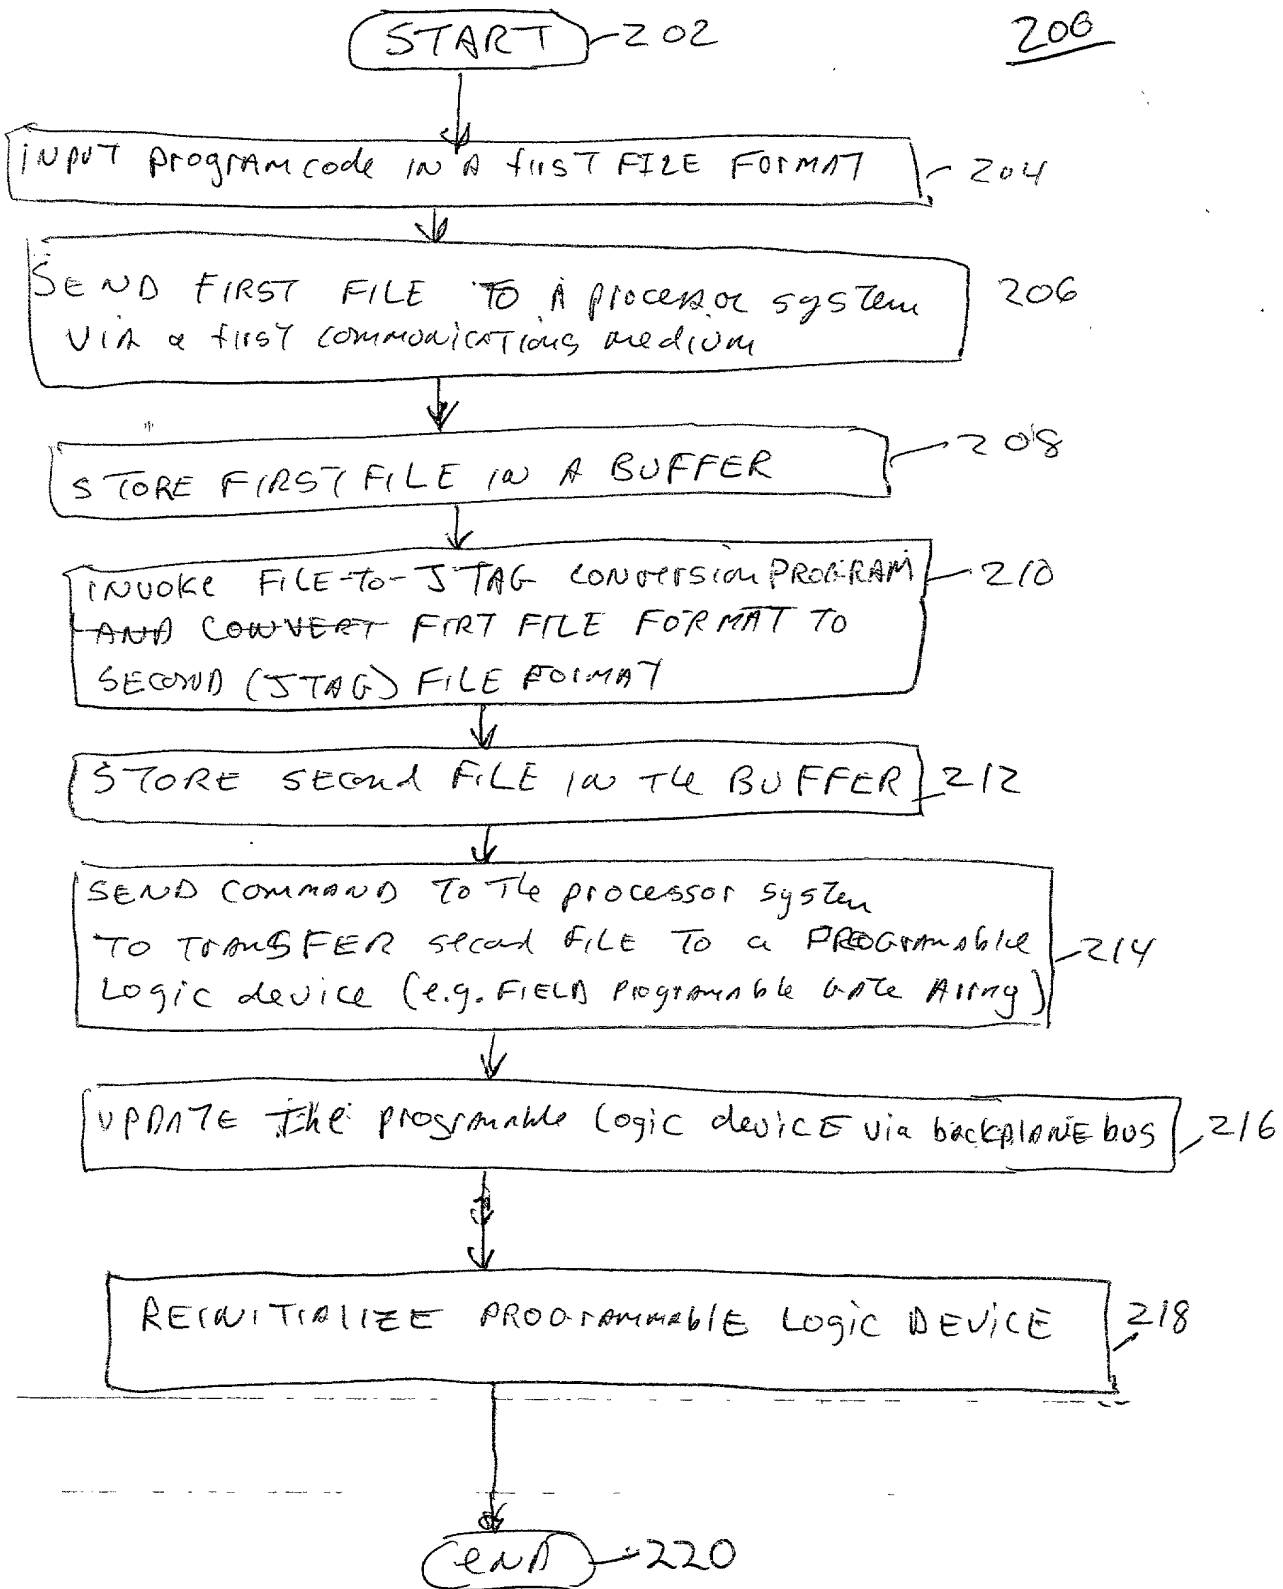 START 202
200
INPUT program code IN A first FILE FORMAT 204
SEND FIRST FILE TO A processor system 206
VIA a first communications medium
STORE FIRST FILE IN A BUFFER 208
INVOKE FILE-TO-JTAG CONVersion PROGRAM 210
AND CONVERT FIRT FILE FORMAT TO
SECOND (JTAG) FILE FORMAT
STORE second FILE IN The BUFFER 212
SEND COMMAND TO The processor system
TO TRANSFER second FILE TO a PROGramable 214
Logic device (e.g. FIELD Programable Gate Array)
UPDATE The programable Logic deviCE via backplANE bus 216
REINITIALIZE PROGrammablE Logic DEViCE 218
END 220